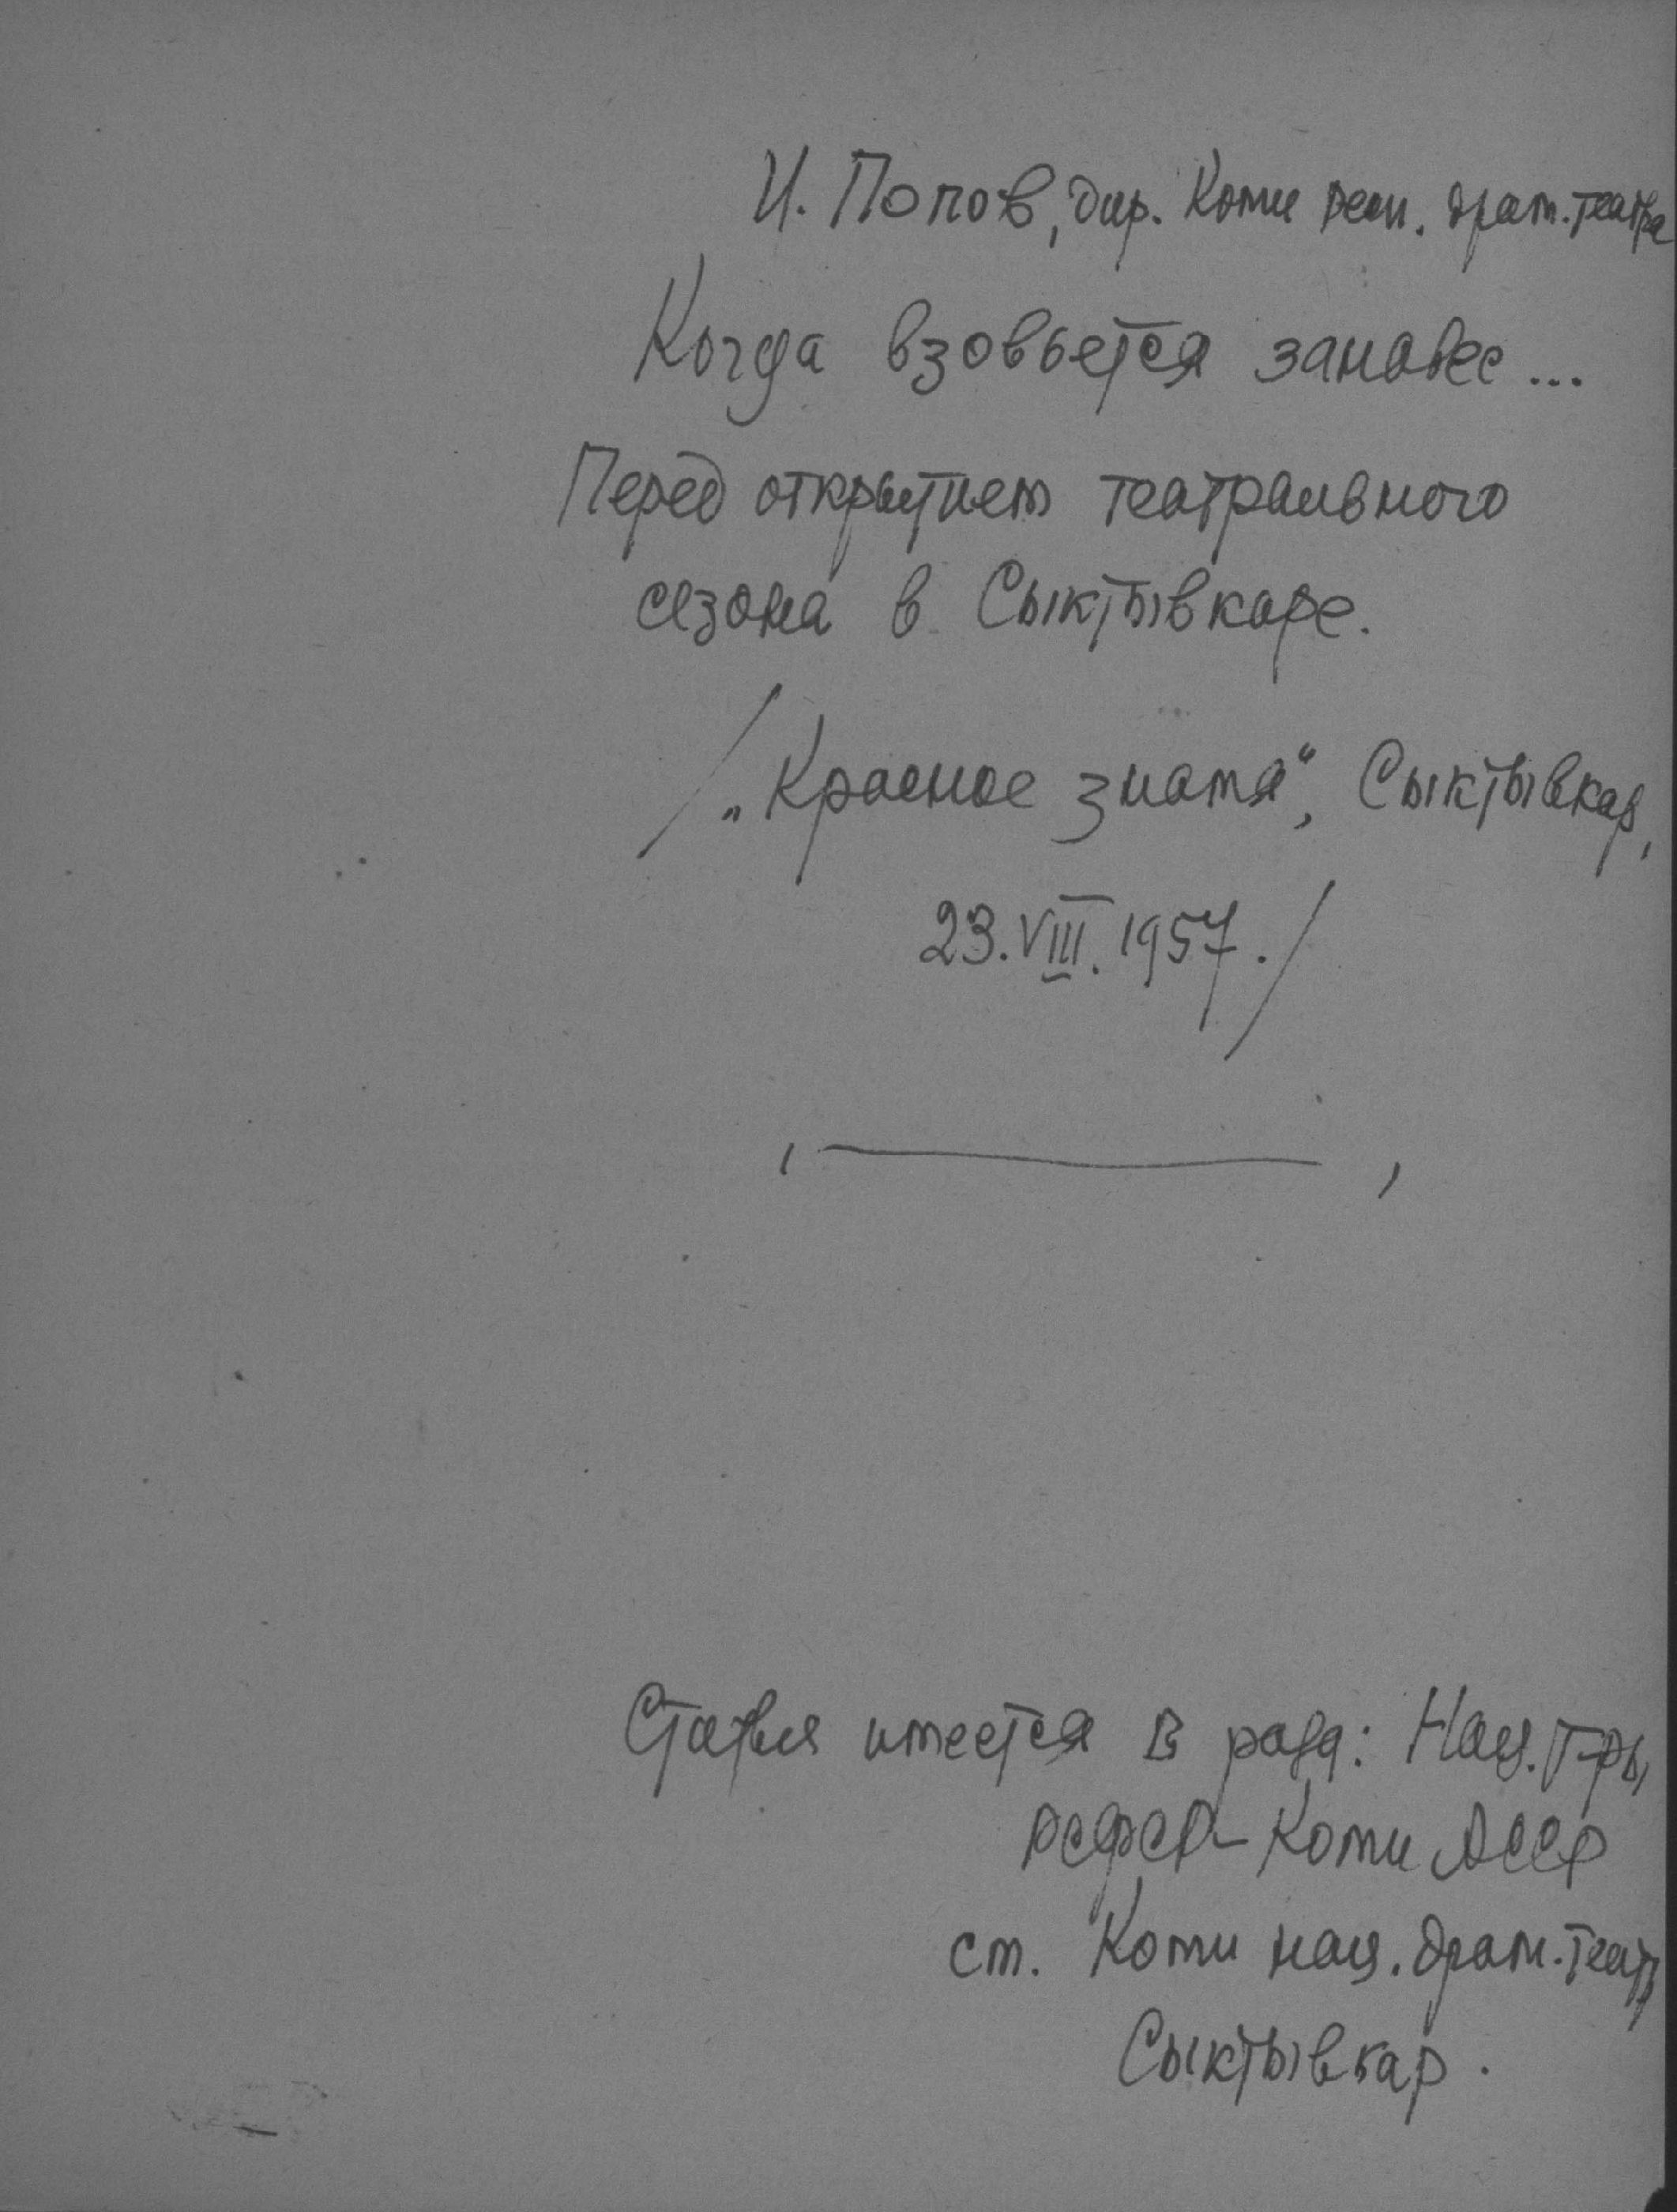 И. Попов, дир. Коми респ. драм. театра
Когда взовьется занавес...
Перед открытием театрального
сезона в Сыктывкаре.
/„Красное знамя“, Сыктывкар,
23.VIII.1957./
Статья имеется в разд: Нац. т-ры
РСФСР – Коми АССР
см. Коми нац. драм. театр
Сыктывкар.